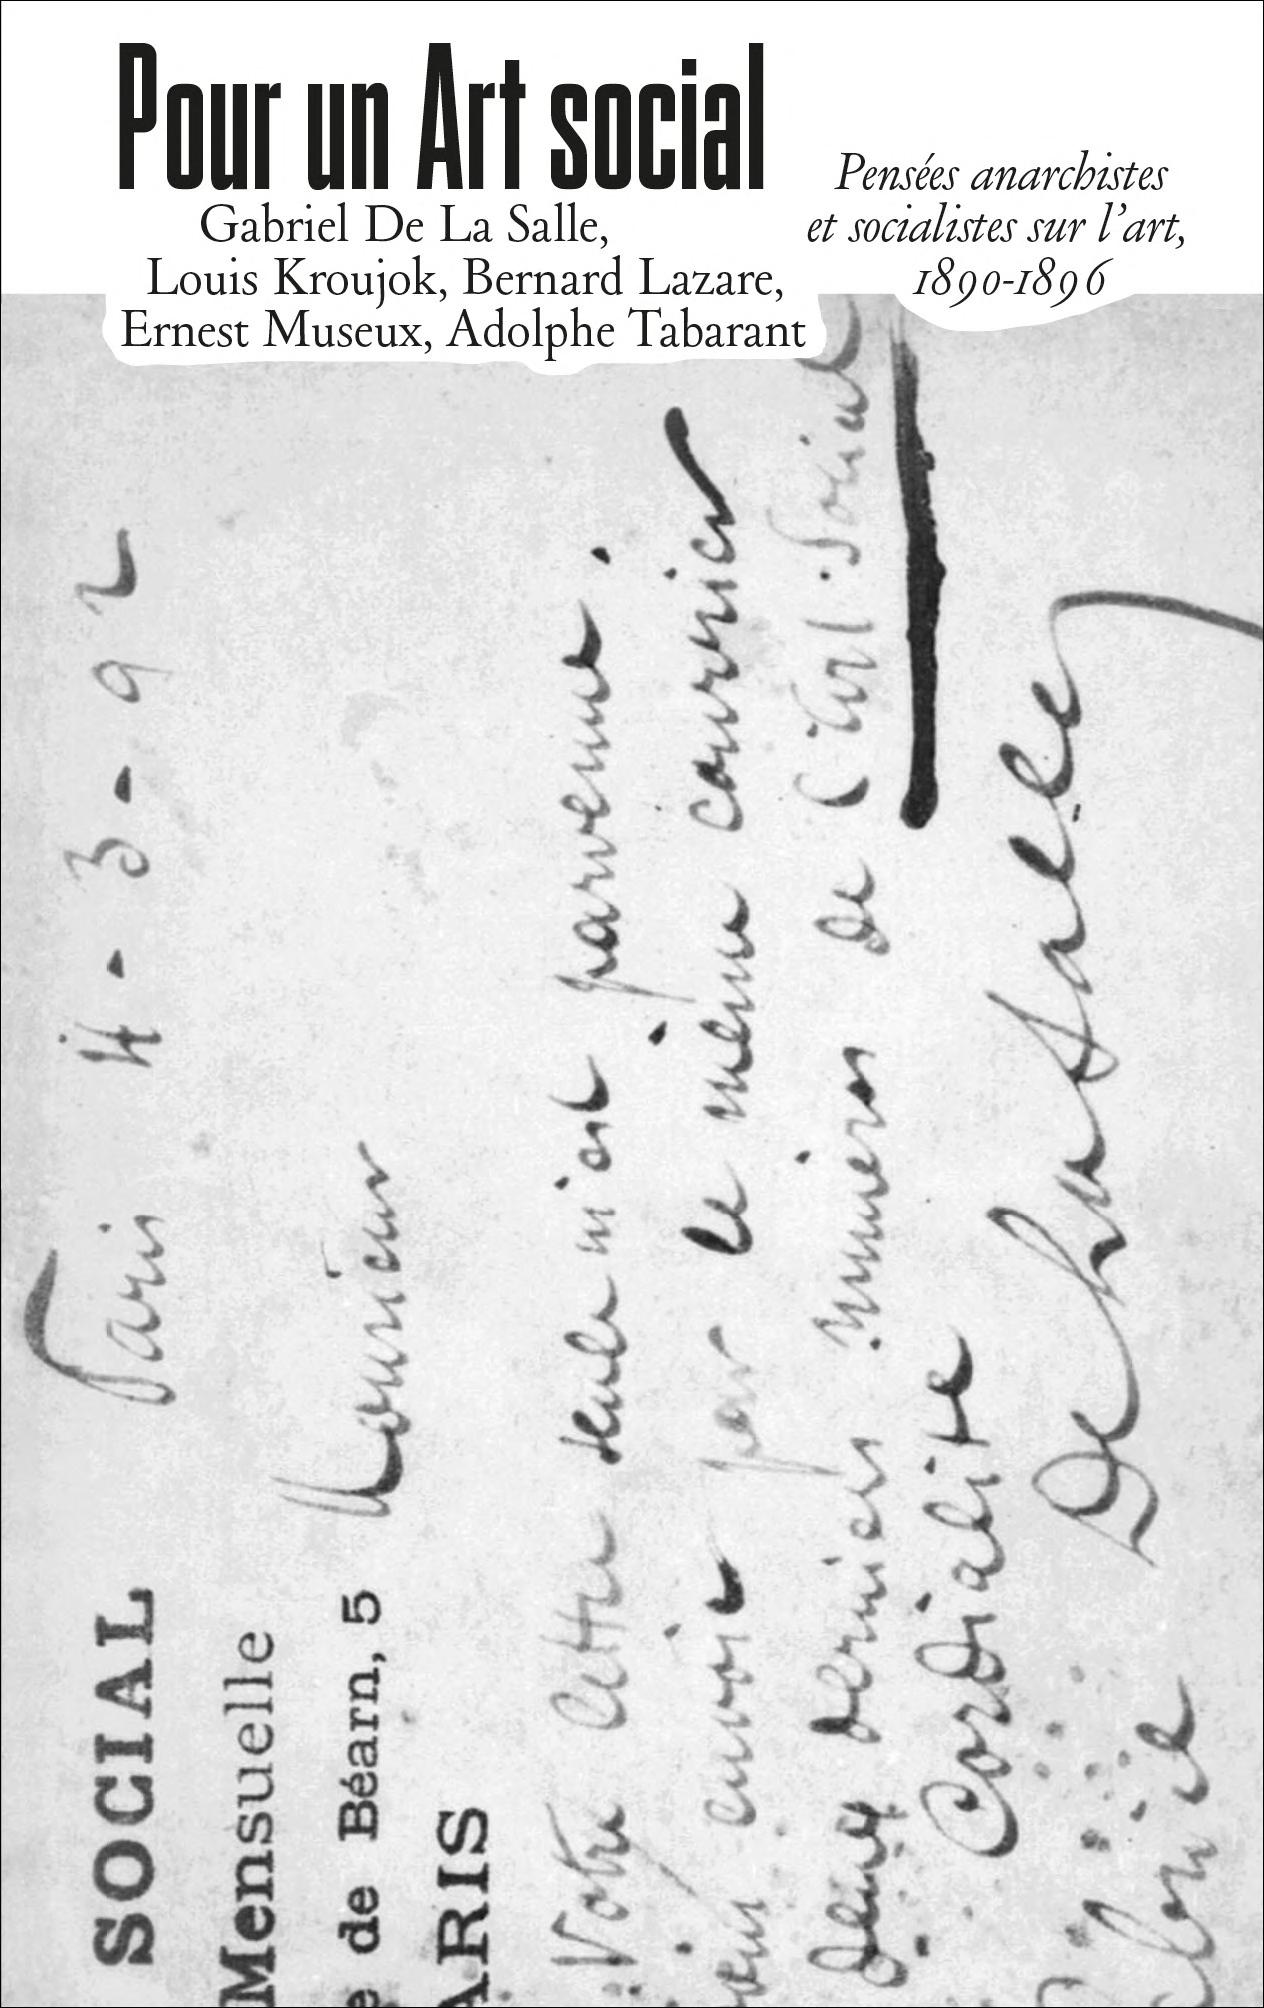 Pour un Art social
Gabriel De La Salle,
Louis Kroujok, Bernard Lazare,
Ernest Museux, Adolphe Tabarant
Pensées anarchistes
et socialistes sur l'art,
1890-1896
SOCIAL
Mensuelle
de Béarn, 5
ARIS
Paris 4-3-92
Monsieur
Votre lettre seule m'est parvenue.
envoie par le même courrier
deux derniers numéros de l'Art Social
Cordialité
De la Salle